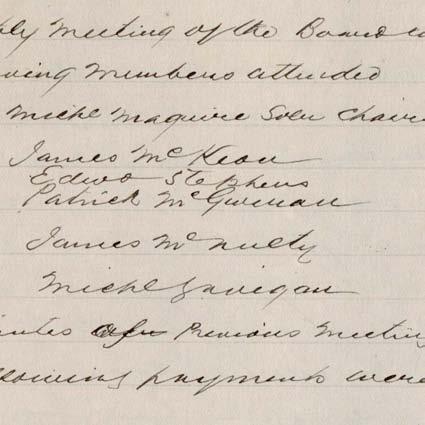 hly Meeting of the Board w
owing Members attended
Michl Maguire Solr Chair
James McKeon
Edwd Stephens
Patrick McGuinan
James McNulty
Michl Gavigan
inutes of Previous Meeting
llowing payments were